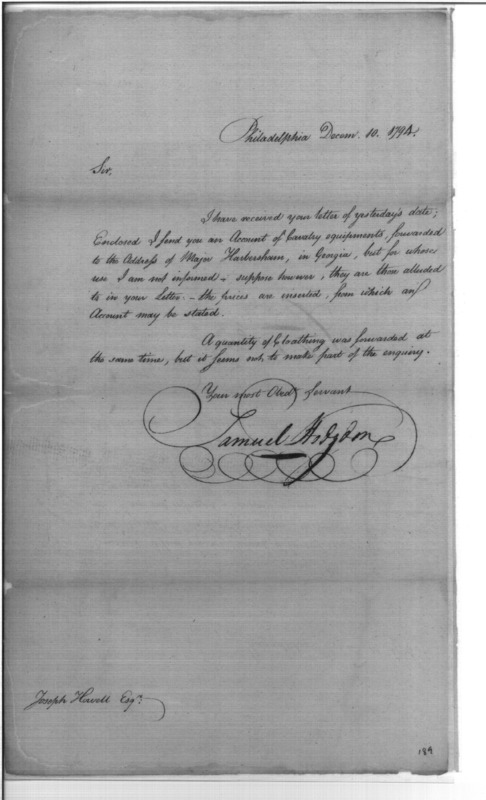 Philadelphia Decem. 10. 1794.
Sir,
I have received your letter of yesterday's date;
Enclosed I send you an Account of Cavalry equipments, forwarded
to the Address of Major Habersham, in Georgia, but for whose
use I am not informed - suppose however, they are those alluded
to in your Letter. - the prices are inserted, from which an
Account may be stated.
A quantity of Cloathing was forwarded at
the same time, but it seems not, to make part of the enquiry.
Your most Obed. Servant
Samuel Hodgdon
Joseph Howell Esqr.
189